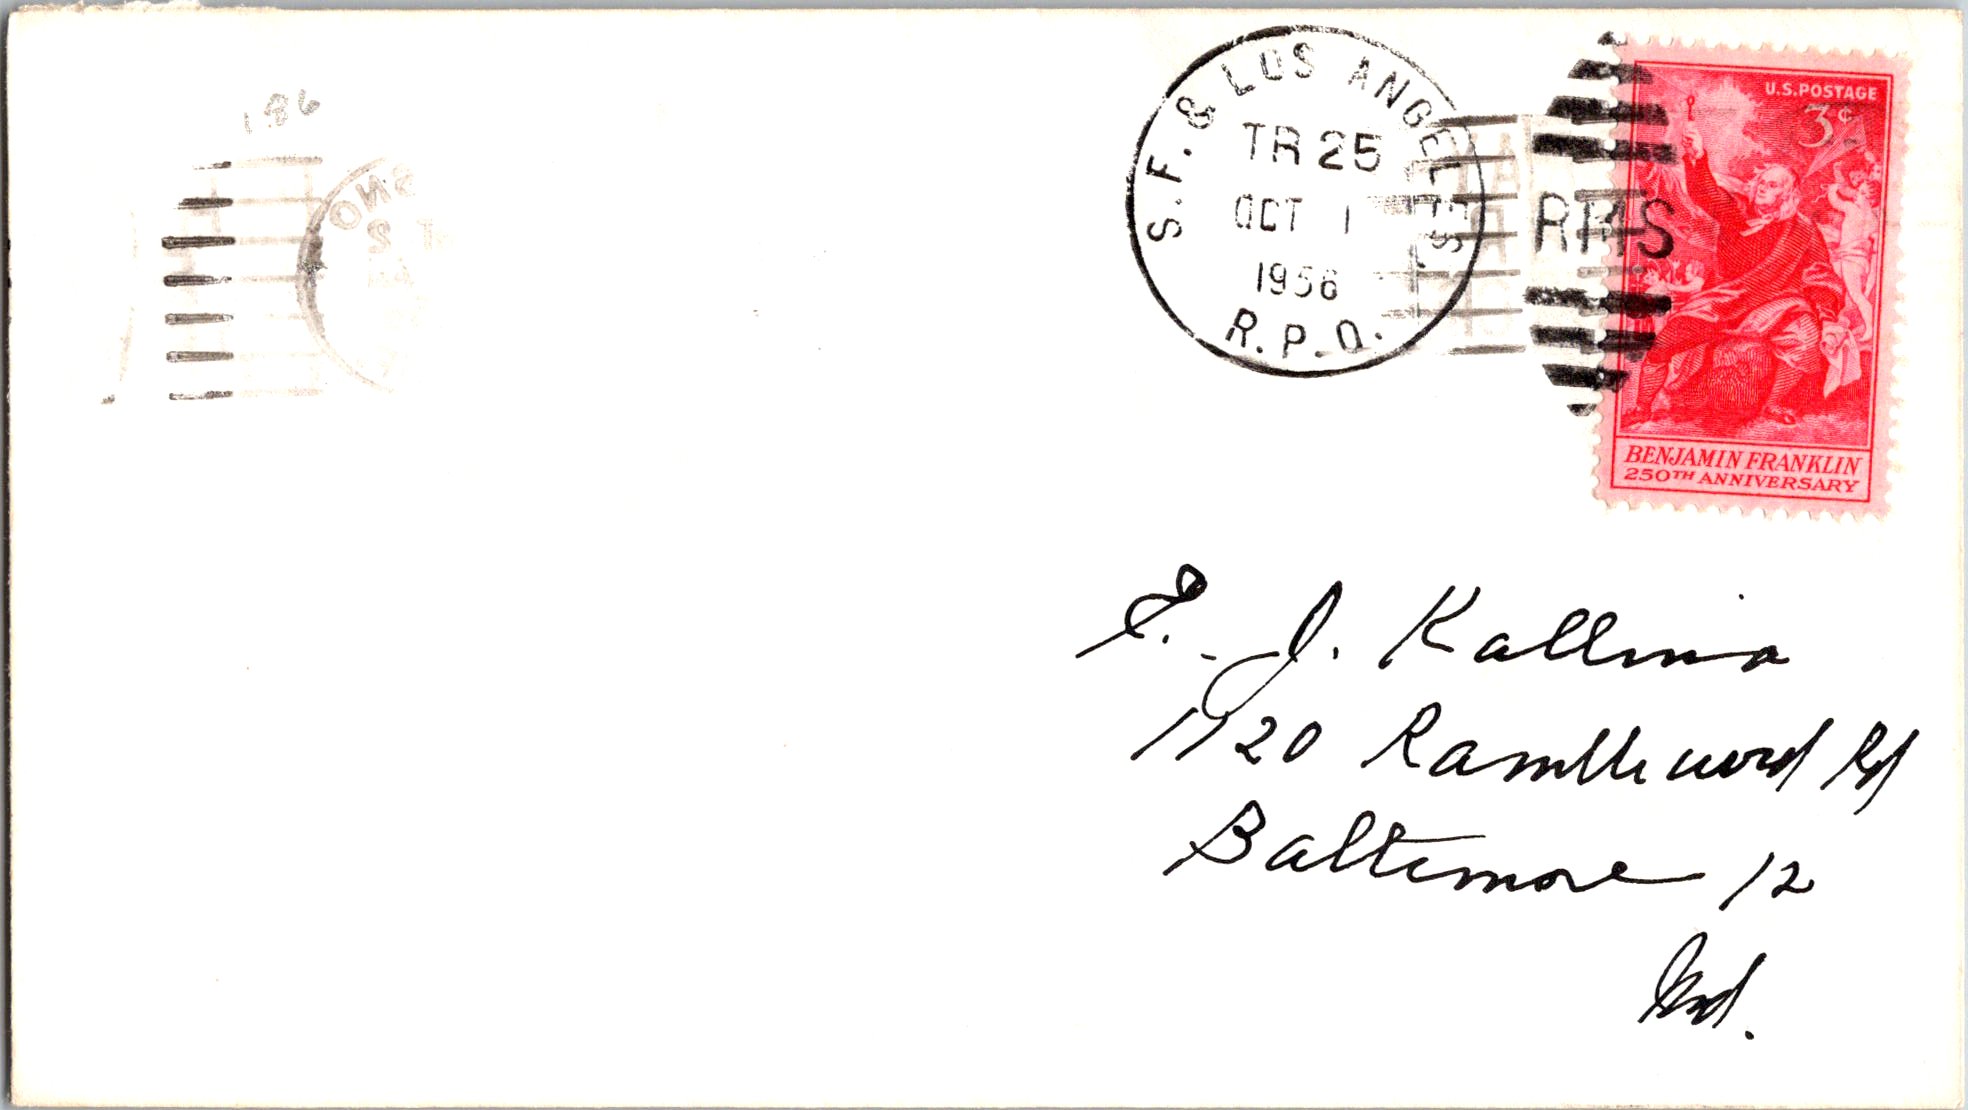 186
S.F. & LOS ANGELES
TR 25
OCT 1
1956
R.P.O.
RMS
U.S. POSTAGE
3¢
BENJAMIN FRANKLIN
250TH ANNIVERSARY
F. J. Kallina
1720 Ramblewood Rd
Baltimore 12
Md.